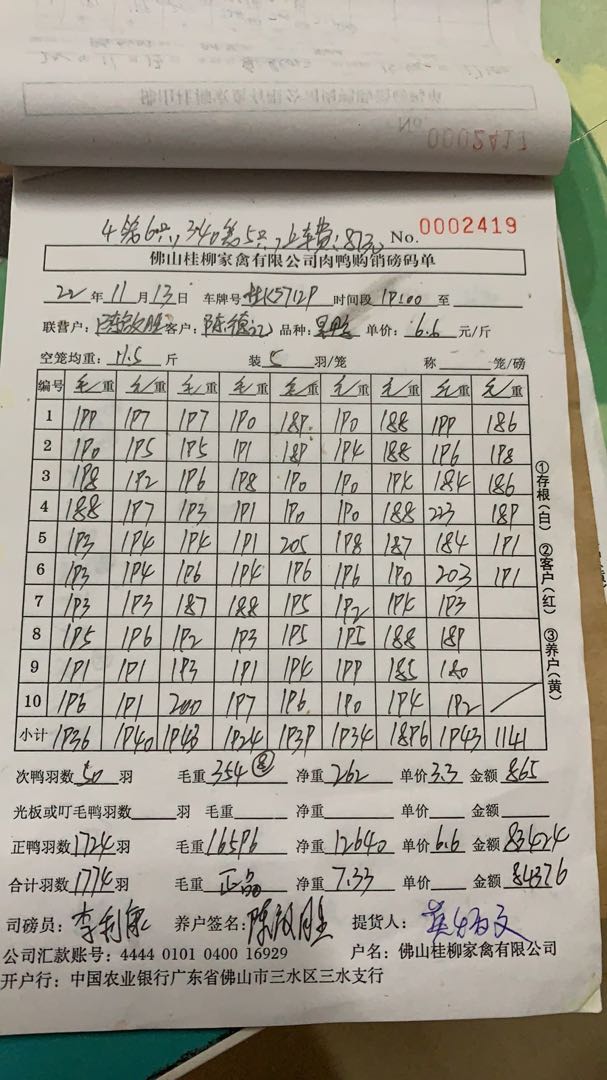 4笼6只,340笼5只,上车费:873元 No. 0002419
佛山桂柳家禽有限公司肉鸭购销磅码单
22年11月13日 车牌号桂K5712P 时间段 至
联营户: 客户: 品种: 单价:6.6元/斤
空笼均重:11.5斤 装5羽/笼 称 笼/磅
编号 毛重 毛重 毛重 毛重 毛重 毛重 毛重 毛重 毛重
1 199 197 197 190 189 190 188 199 186
2 190 195 195 191 189 194 188 196 198
3 198 192 196 198 190 190 194 184 186
4 188 197 193 191 190 190 188 223 189
5 193 194 194 191 205 198 187 184 191
6 193 194 196 194 196 196 190 203 191
7 193 193 187 188 195 192 194 193
8 195 196 192 193 195 195 188 189
9 191 191 193 191 194 199 185 180
10 196 191 200 197 196 190 194 192
小计 1936 1940 1943 1924 1939 1934 1896 1943 1141
①存根(白) ②客户(红) ③养户(黄)
次鸭羽数50羽 毛重354⑧ 净重262 单价3.3 金额865
光板或叮毛鸭羽数 羽 毛重 净重 单价 金额
正鸭羽数1724羽 毛重16596 净重12640 单价6.6 金额83424
合计羽数1774羽 毛重正品 净重7.33 单价 金额84376
司磅员:李利康 养户签名: 提货人:
公司汇款账号:4444 0101 0400 16929 户名:佛山桂柳家禽有限公司
开户行:中国农业银行广东省佛山市三水区三水支行